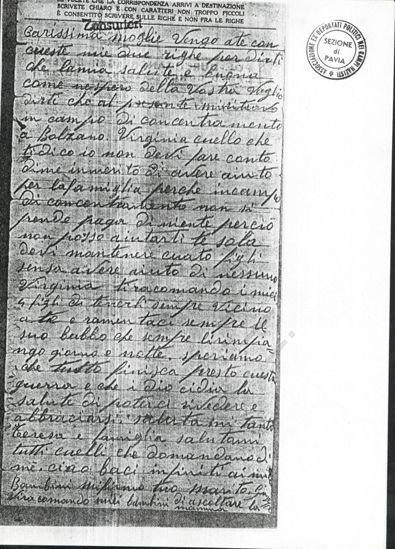 CHE LA CORRISPONDENZA ARRIVI A DESTINAZIONE
SCRIVETE CHIARO E CON CARATTERI NON TROPPO PICCOLI
È CONSENTITO SCRIVERE SULLE RIGHE E NON FRA LE RIGHE
Zensuriert
Carissima moglie Vengo a te con
queste mie due righe per dirti
che la mia salute è buona
come spero della Vostra Voglio
dirte che al presente mi ritrovo
in campo di concentramento
a Bolzano. Virginia quello che
ti dico io non devi fare conto
di me in merito di avere aiuto
per la famiglia perche in campo
di concentramento non si
prende paga di niente perciò
non posso aiutarti te sola
devi mantenere cuato figli
sensa avere aiuto di nessuno
Virginia ti racomando i miei
4 figli di tenerli sempre vicino
a te e ramentaci sempre il
suo babbo che sempre li rimpia
ngo giorno e notte. speriamo
che tutto finisca presto questa
guerra e che i dio ci dia la
salute di poterci rivedere e
abbraciarsi. saluta mi tanto
teresa e famiglia salutami
tutti cuelli che domandano di
me. ciao baci infiniti ai miei
Bambini tuo marito
ti racomando miei bambini di ascoltare la
mamma
ASSOCIAZIONE EX DEPORTATI POLITICI NEI CAMPI NAZISTI
SEZIONE
di
PAVIA